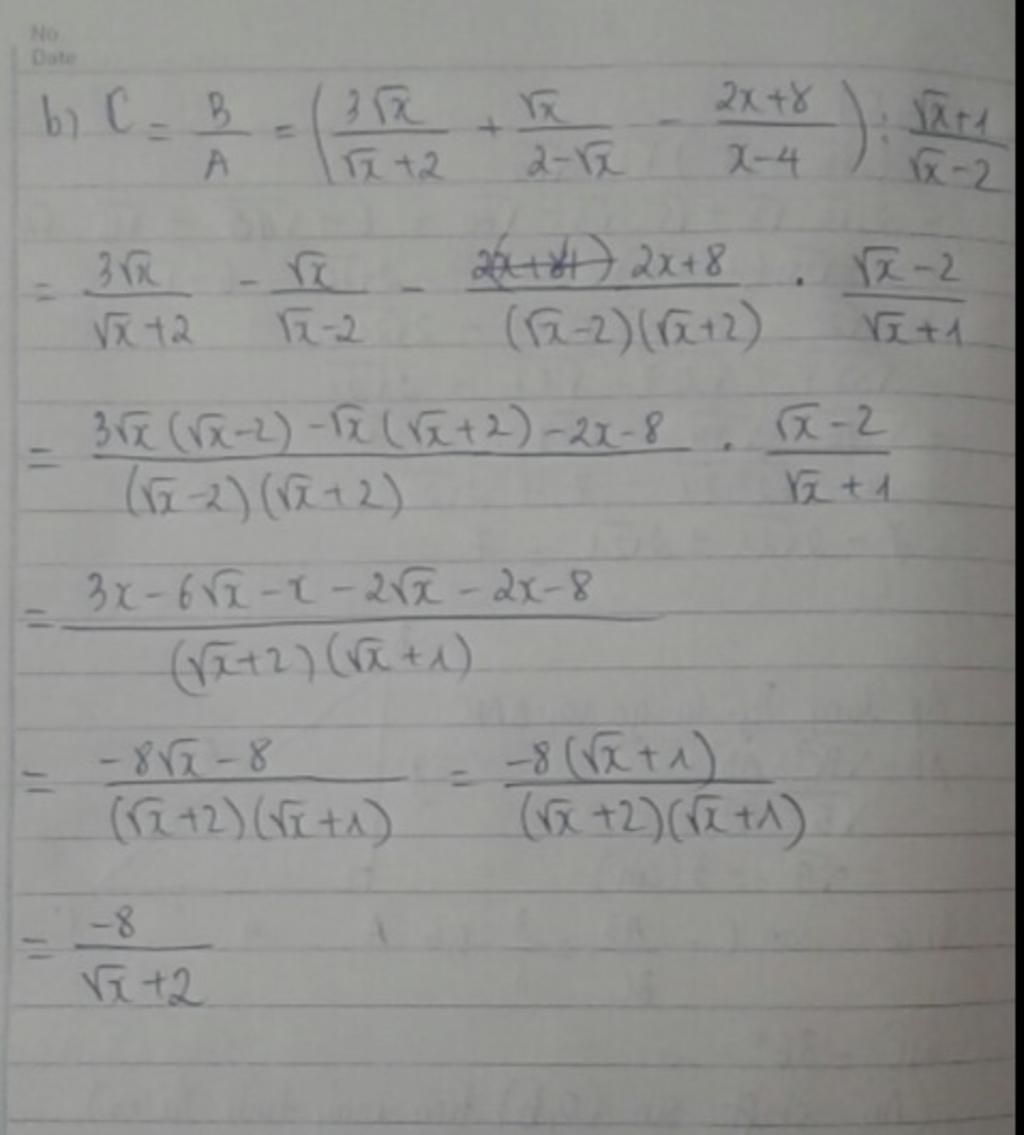 No
Date
b) C = B/A = (3√x/(√x+2) + √x/(2-√x) - (2x+8)/(x-4)) : (√x+1)/(√x-2)
= 3√x/(√x+2) - √x/(√x-2) - (2x+8)/((√x-2)(√x+2)) . (√x-2)/(√x+1)
= (3√x(√x-2) - √x(√x+2) - 2x - 8)/((√x-2)(√x+2)) . (√x-2)/(√x+1)
= (3x - 6√x - x - 2√x - 2x - 8)/((√x+2)(√x+1))
= (-8√x - 8)/((√x+2)(√x+1)) = -8(√x+1)/((√x+2)(√x+1))
= -8/(√x+2)